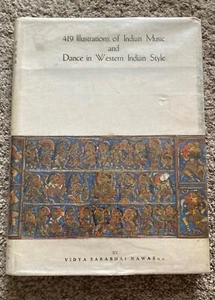 419 Illustrations of Indian Music
and
Dance in Western Indian Style
BY
VIDYA SARABHAI NAWAB